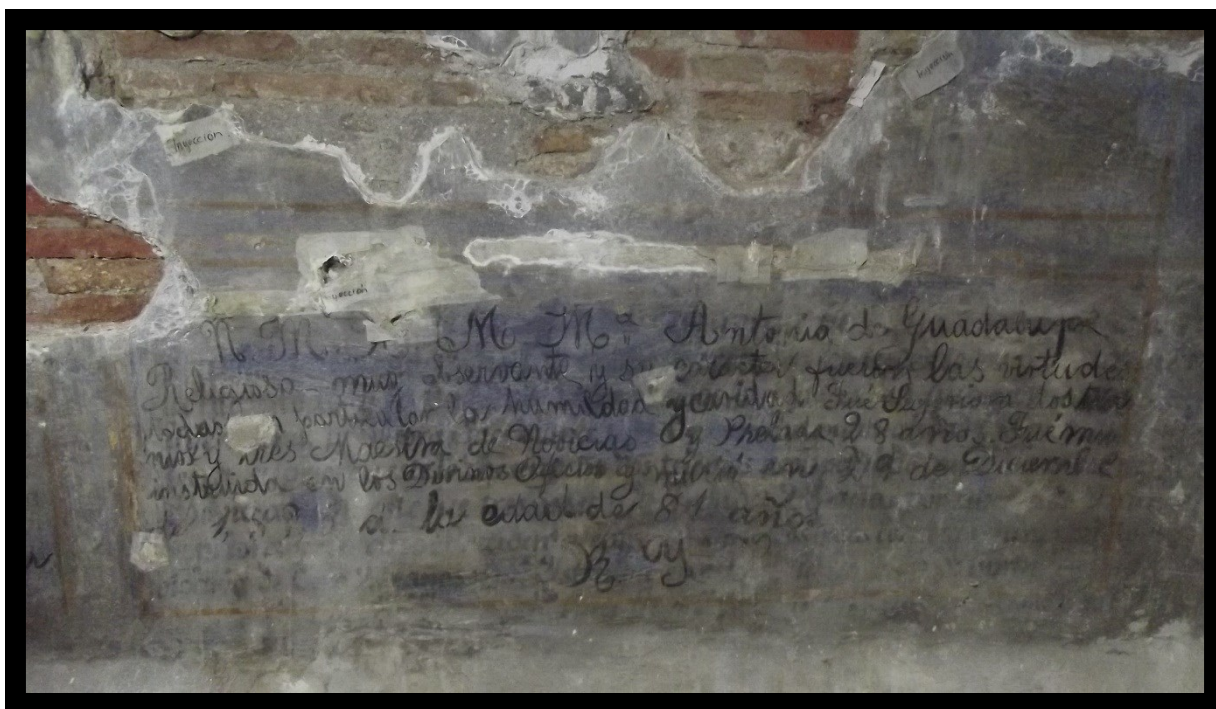 Inyeccion
Inyeccion
Inyeccion
N. M. R. M. Mª Antonia de Guadalupe
Religiosa muy observante y su caracter fueron las virtudes
todas particular la humildad y caridad. Fué Superiora dos
y tres Maestra de Novicias y Prelada 28 años. Fué muy
instruida en los Divinos Oficios y murió en 29 de Diciembre
de a la edad de 81 años